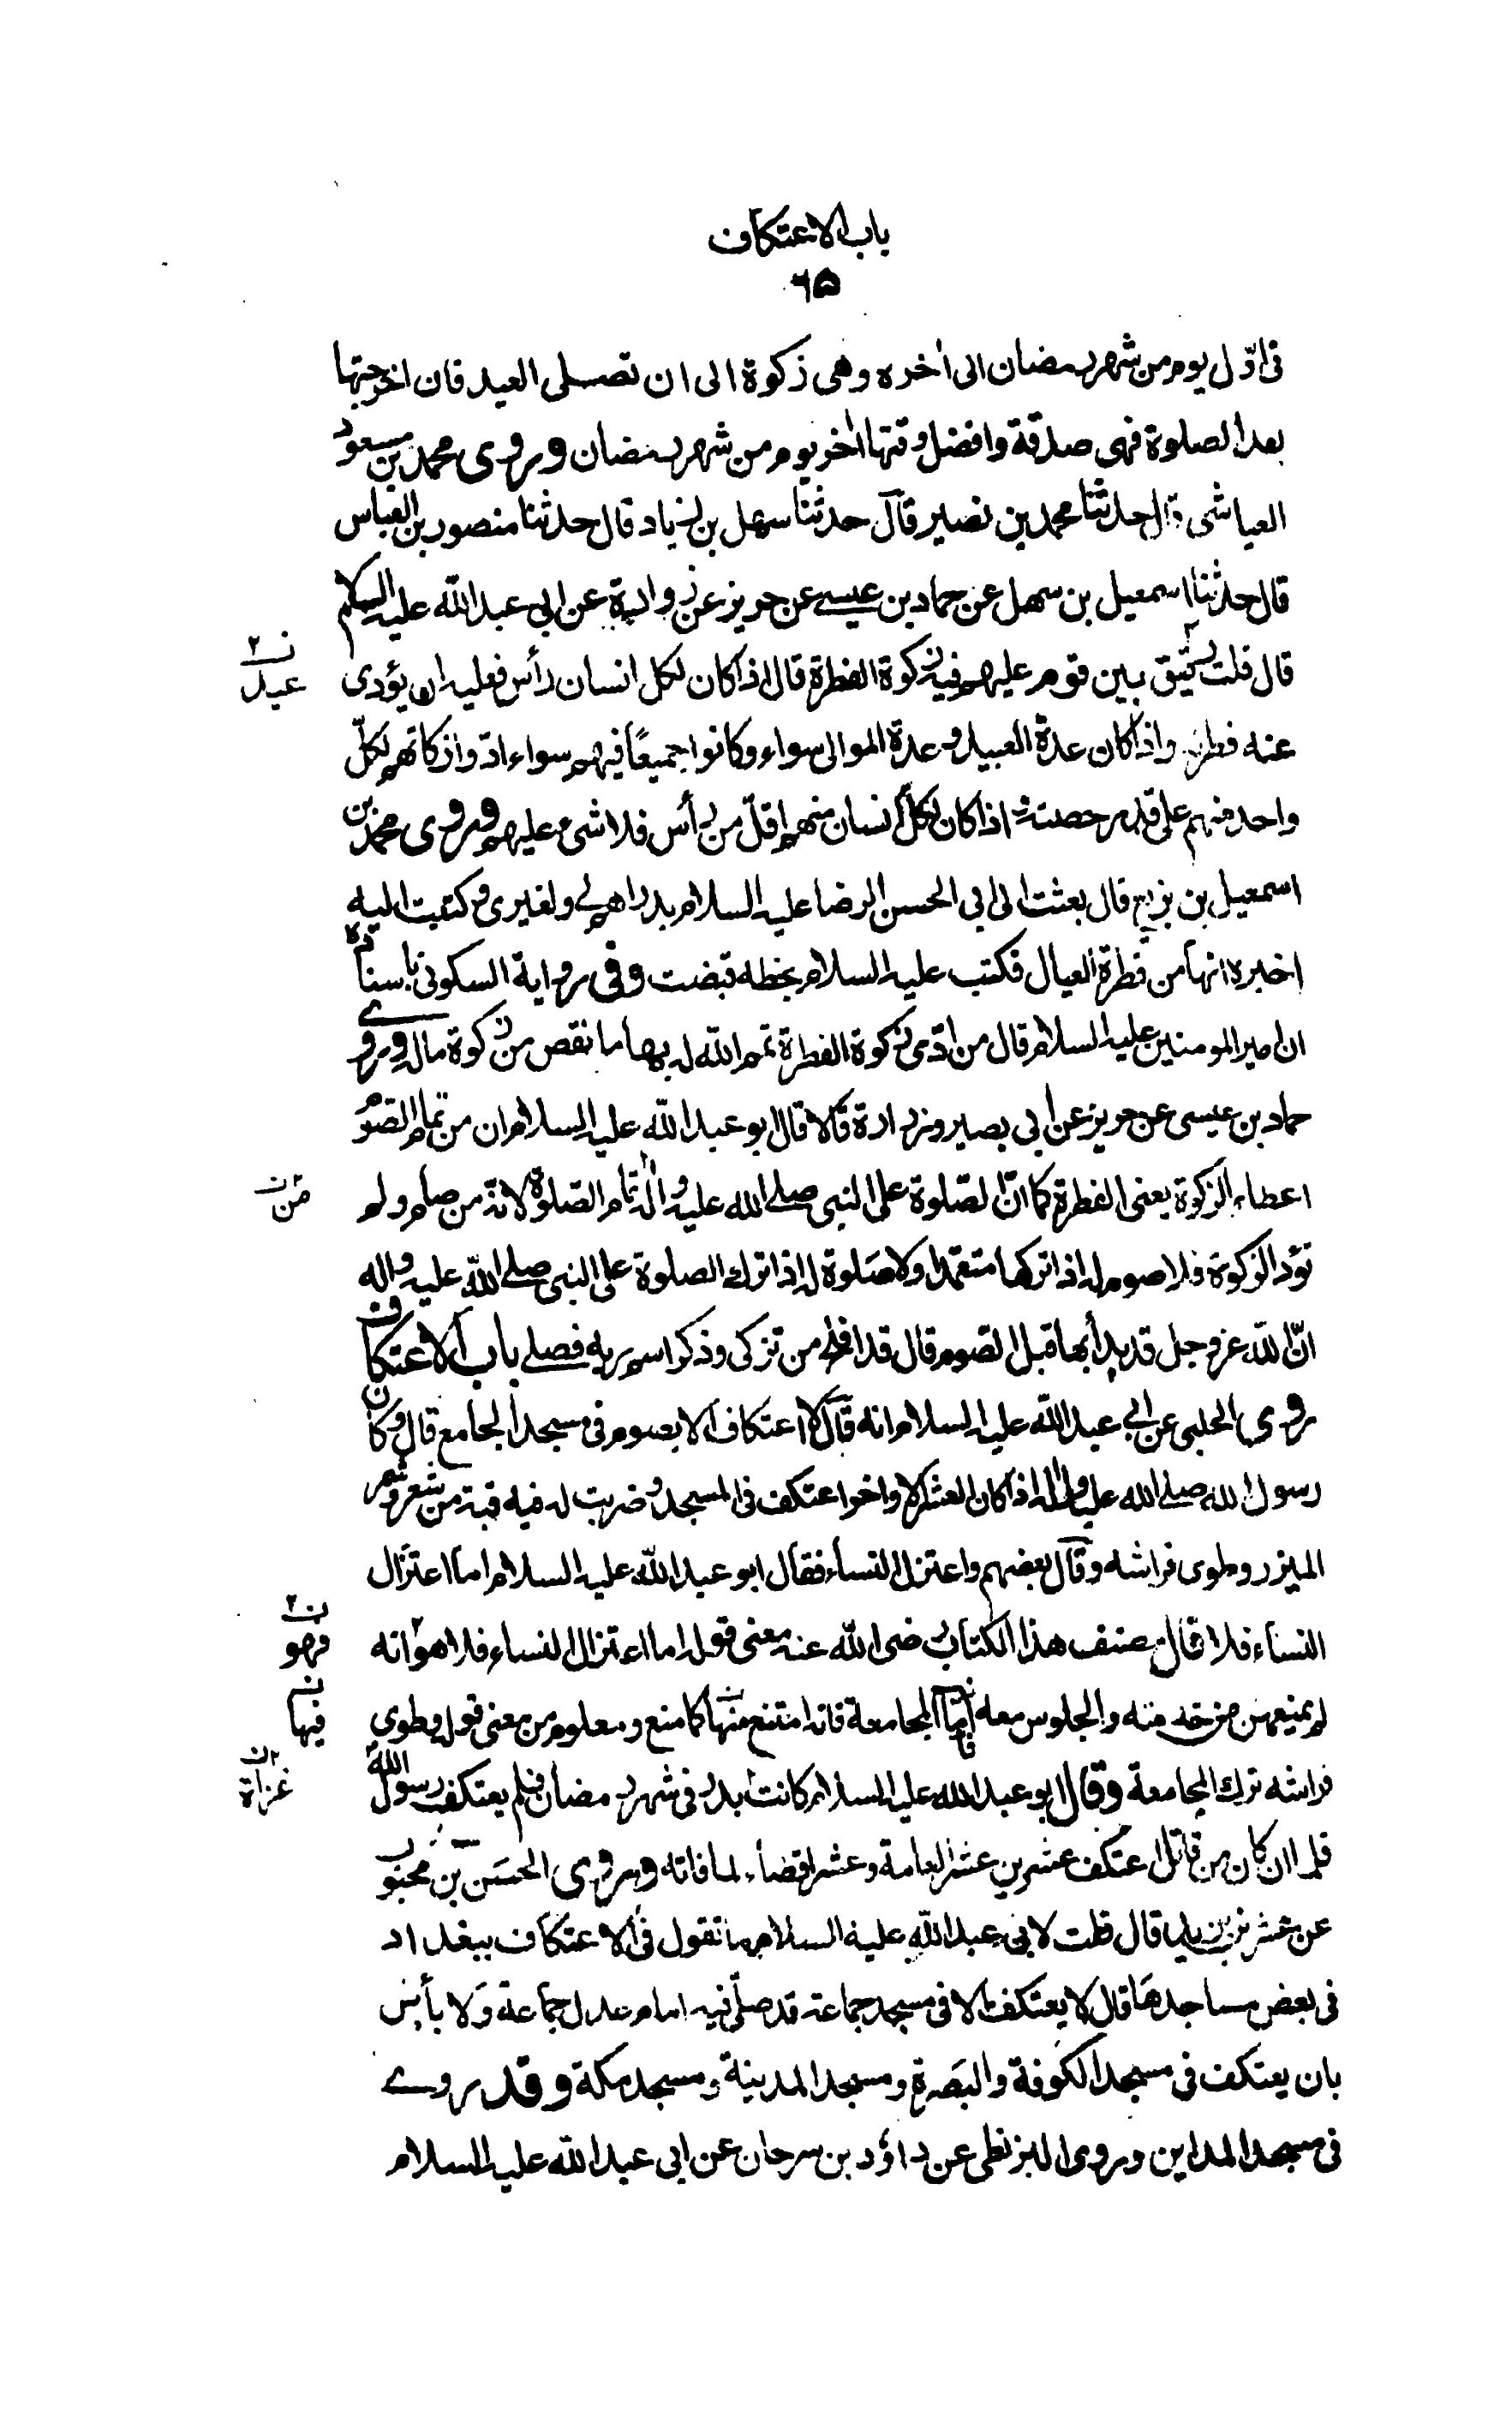 باب الاعتكاف
٦٥
فى اوّل يوم من شهر رمضان الى اخره وهى زكوة الى ان تصلى العيد فان اخرجتها
بعد الصلوة فهى صدقة وافضل وقتها اخر يوم من شهر رمضان وروى محمد بن مسعود
العياشى قال حدثنا محمد بن نصير قال حدثنا سهل بن زياد قال حدثنا منصور بن العباس
قال حدثنا اسمعيل بن سهل عن حماد بن عيسے عن حريز عن زرارة عن ابى عبد الله عليه السلام
قال قلت رقيق بين قوم عليهم فيه زكوة الفطرة قال اذا كان لكل انسان رأس فعليه ان يؤدى
ن٢
عبد
عنه فطرته واذا كان عدة العبيد وعدة الموالى سواء وكانوا جميعًا فيهم سواء ادّوا زكاتهم لكلّ
واحد منهم على قدر حصته و اذا كان لكل انسان منهم اقلّ من رأس فلا شئ عليهم وروى محمد بن
اسمعيل بن بزيع قال بعثت الى ابى الحسن الرضا عليه السلام بدراهم لے ولغيرى وكتبت اليه
اخبره انها من فطرة العيال فكتب عليه السلام بخطه قبضت وفى رواية السكونى باسناده
ان امير المومنين عليه السلام قال من ادّى زكوة الفطرة تمم الله له بها ما نقص من زكوة ماله وروى
حماد بن عيسى عن حريز عن ابى بصير وزرارة قالا قال ابو عبد الله عليه السلام ان من تمام الصّوم
اعطاء الزكوة يعنى الفطرة كما انّ الصّلوة على النبى صلے الله عليه واله تمام الصّلوة لانّه من صام ولم
ن
من
تؤد الزكوة فلا صوم له اذا تركها متعمدا ولا صَلوة له اذا ترك الصلوة على النبى صلے الله عليه واله
انّ الله عز وجل قد بدأ بها قبل الصّوم قال قد افلح من تزكى وذكر اسم ربه فصلے باب الاعتكاف
روى الحلبى عن ابى عبد الله عليه السلام انه قال لا اعتكاف الا بصوم فى مسجد الجامع قال وكان
رسول الله صلے الله عليه واله اذا كان العشر الاواخر اعتكف فى المسجد وضربت له فيه قبة من شعر وشمر
الميزر وطوى فراشه وقال بعضهم واعتزل النساء فقال ابو عبد الله عليه السلام اما اعتزال
النساء فلا قال مصنف هذا الكتاب رضى الله عنه معنى قوله اما اعتزال النساء فلا هو انه
ن٢
فهو
لم يمنعهن من خدمته والجلوس معه فامّا المجامعة فانه امتنع منها كما منع ومعلوم من معنى قوله وطوى
ن
فيها
فراشه ترك المجامعة وقال ابو عبد الله عليه السلام كانت بدر فى شهر رمضان فلم يعتكف رسول الله
ن
غزاة
فلما ان كان من قابل اعتكف عشرين عشرا لعامه وعشرا قضاء لما فاته وروى الحسن بن محبوب
عن عمر بن يزيد قال قلت لابى عبد الله عليه السلام ما تقول فى الاعتكاف ببغداد
فى بعض مساجدها قال لا يعتكف الا فى مسجد جماعة قد صلّى فيه امام عدل جماعة ولا بأس
بان يعتكف فى مسجد الكوفة والبصرة ومسجد المدينة ومسجد مكة وقد روے
فى مسجد المداين وروى البزنطى عن داؤد بن سرحان عن ابى عبد الله عليه السلام